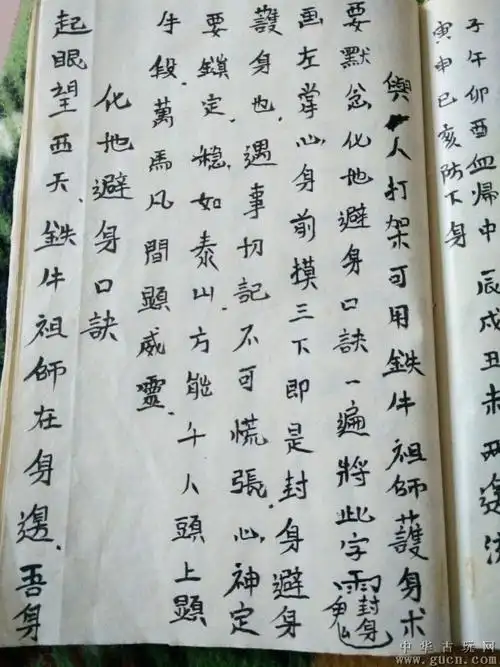 子午卯酉血歸中 辰戌丑未两邊
寅申巳亥防下身
與人打架可用鉄牛祖师護身术
要默忿化地避身口訣一遍將此字封身
画左掌心,身前摸三下即是封身避身
護身也,遇事切記不可慌張,心神定
要鎖定,穩如泰山方能千人頭上顕
手段,萬馬凡間顕威靈.
化地避身口訣
起眼望西天,鉄牛祖师在身邊,吾身
中华古玩网
www.gucn.com